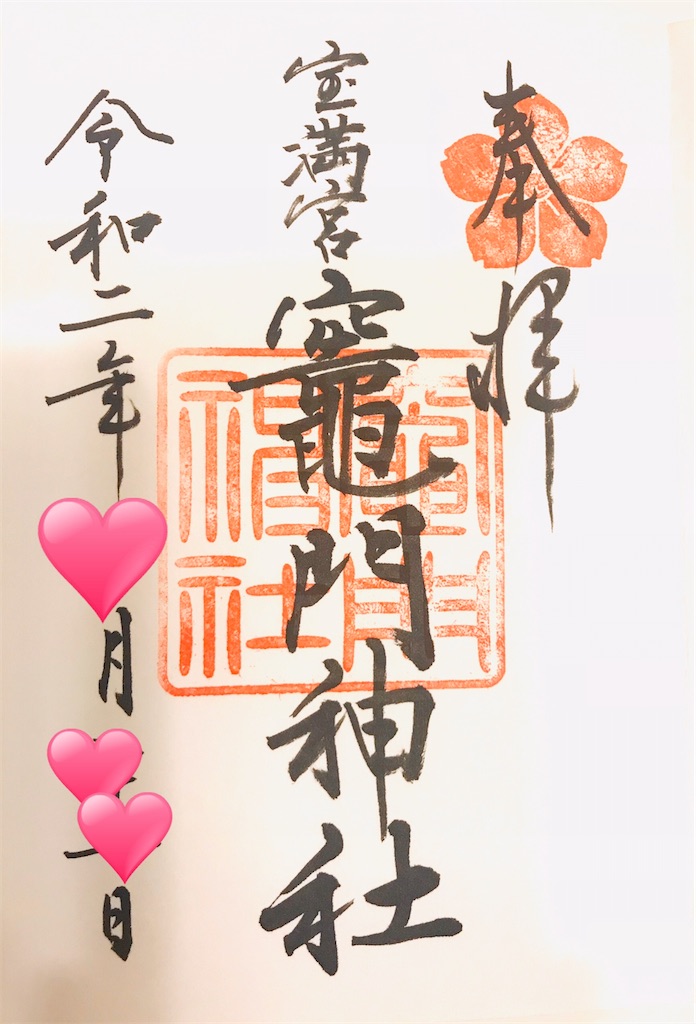 奉拝
宝満宮
竈門神社
竈門神社
令和二年
月
日